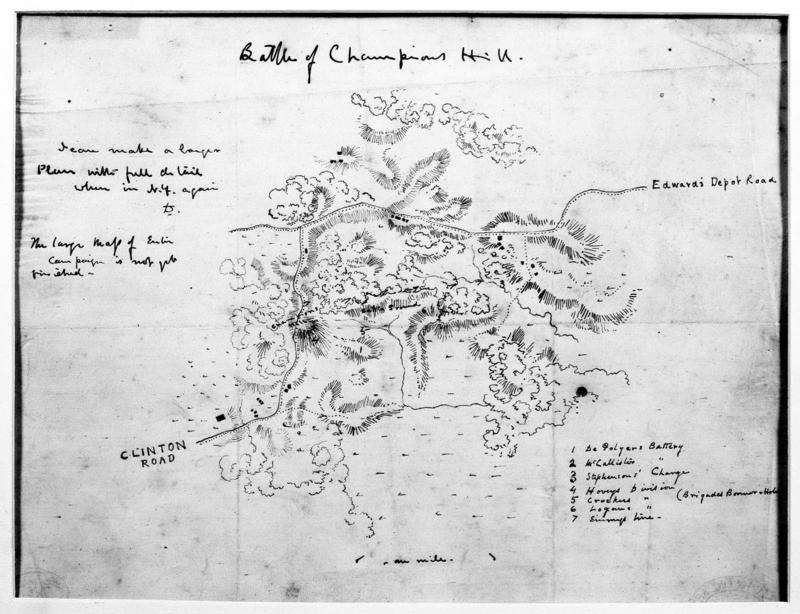 Battle of Champions Hill.
I can make a larger
Plan with full detail
when in N.Y. again
The large Map of Entire
Campaign is not yet
finished -
Edward's Depot Road
CLINTON
ROAD
1 De Golyers Battery
2 McCallister "
3 Stephensons' Charge
4 Hoveys Division
5 Crockers " (Brigades Boomer &
6 Logans "
7 Enemys line -
one mile.